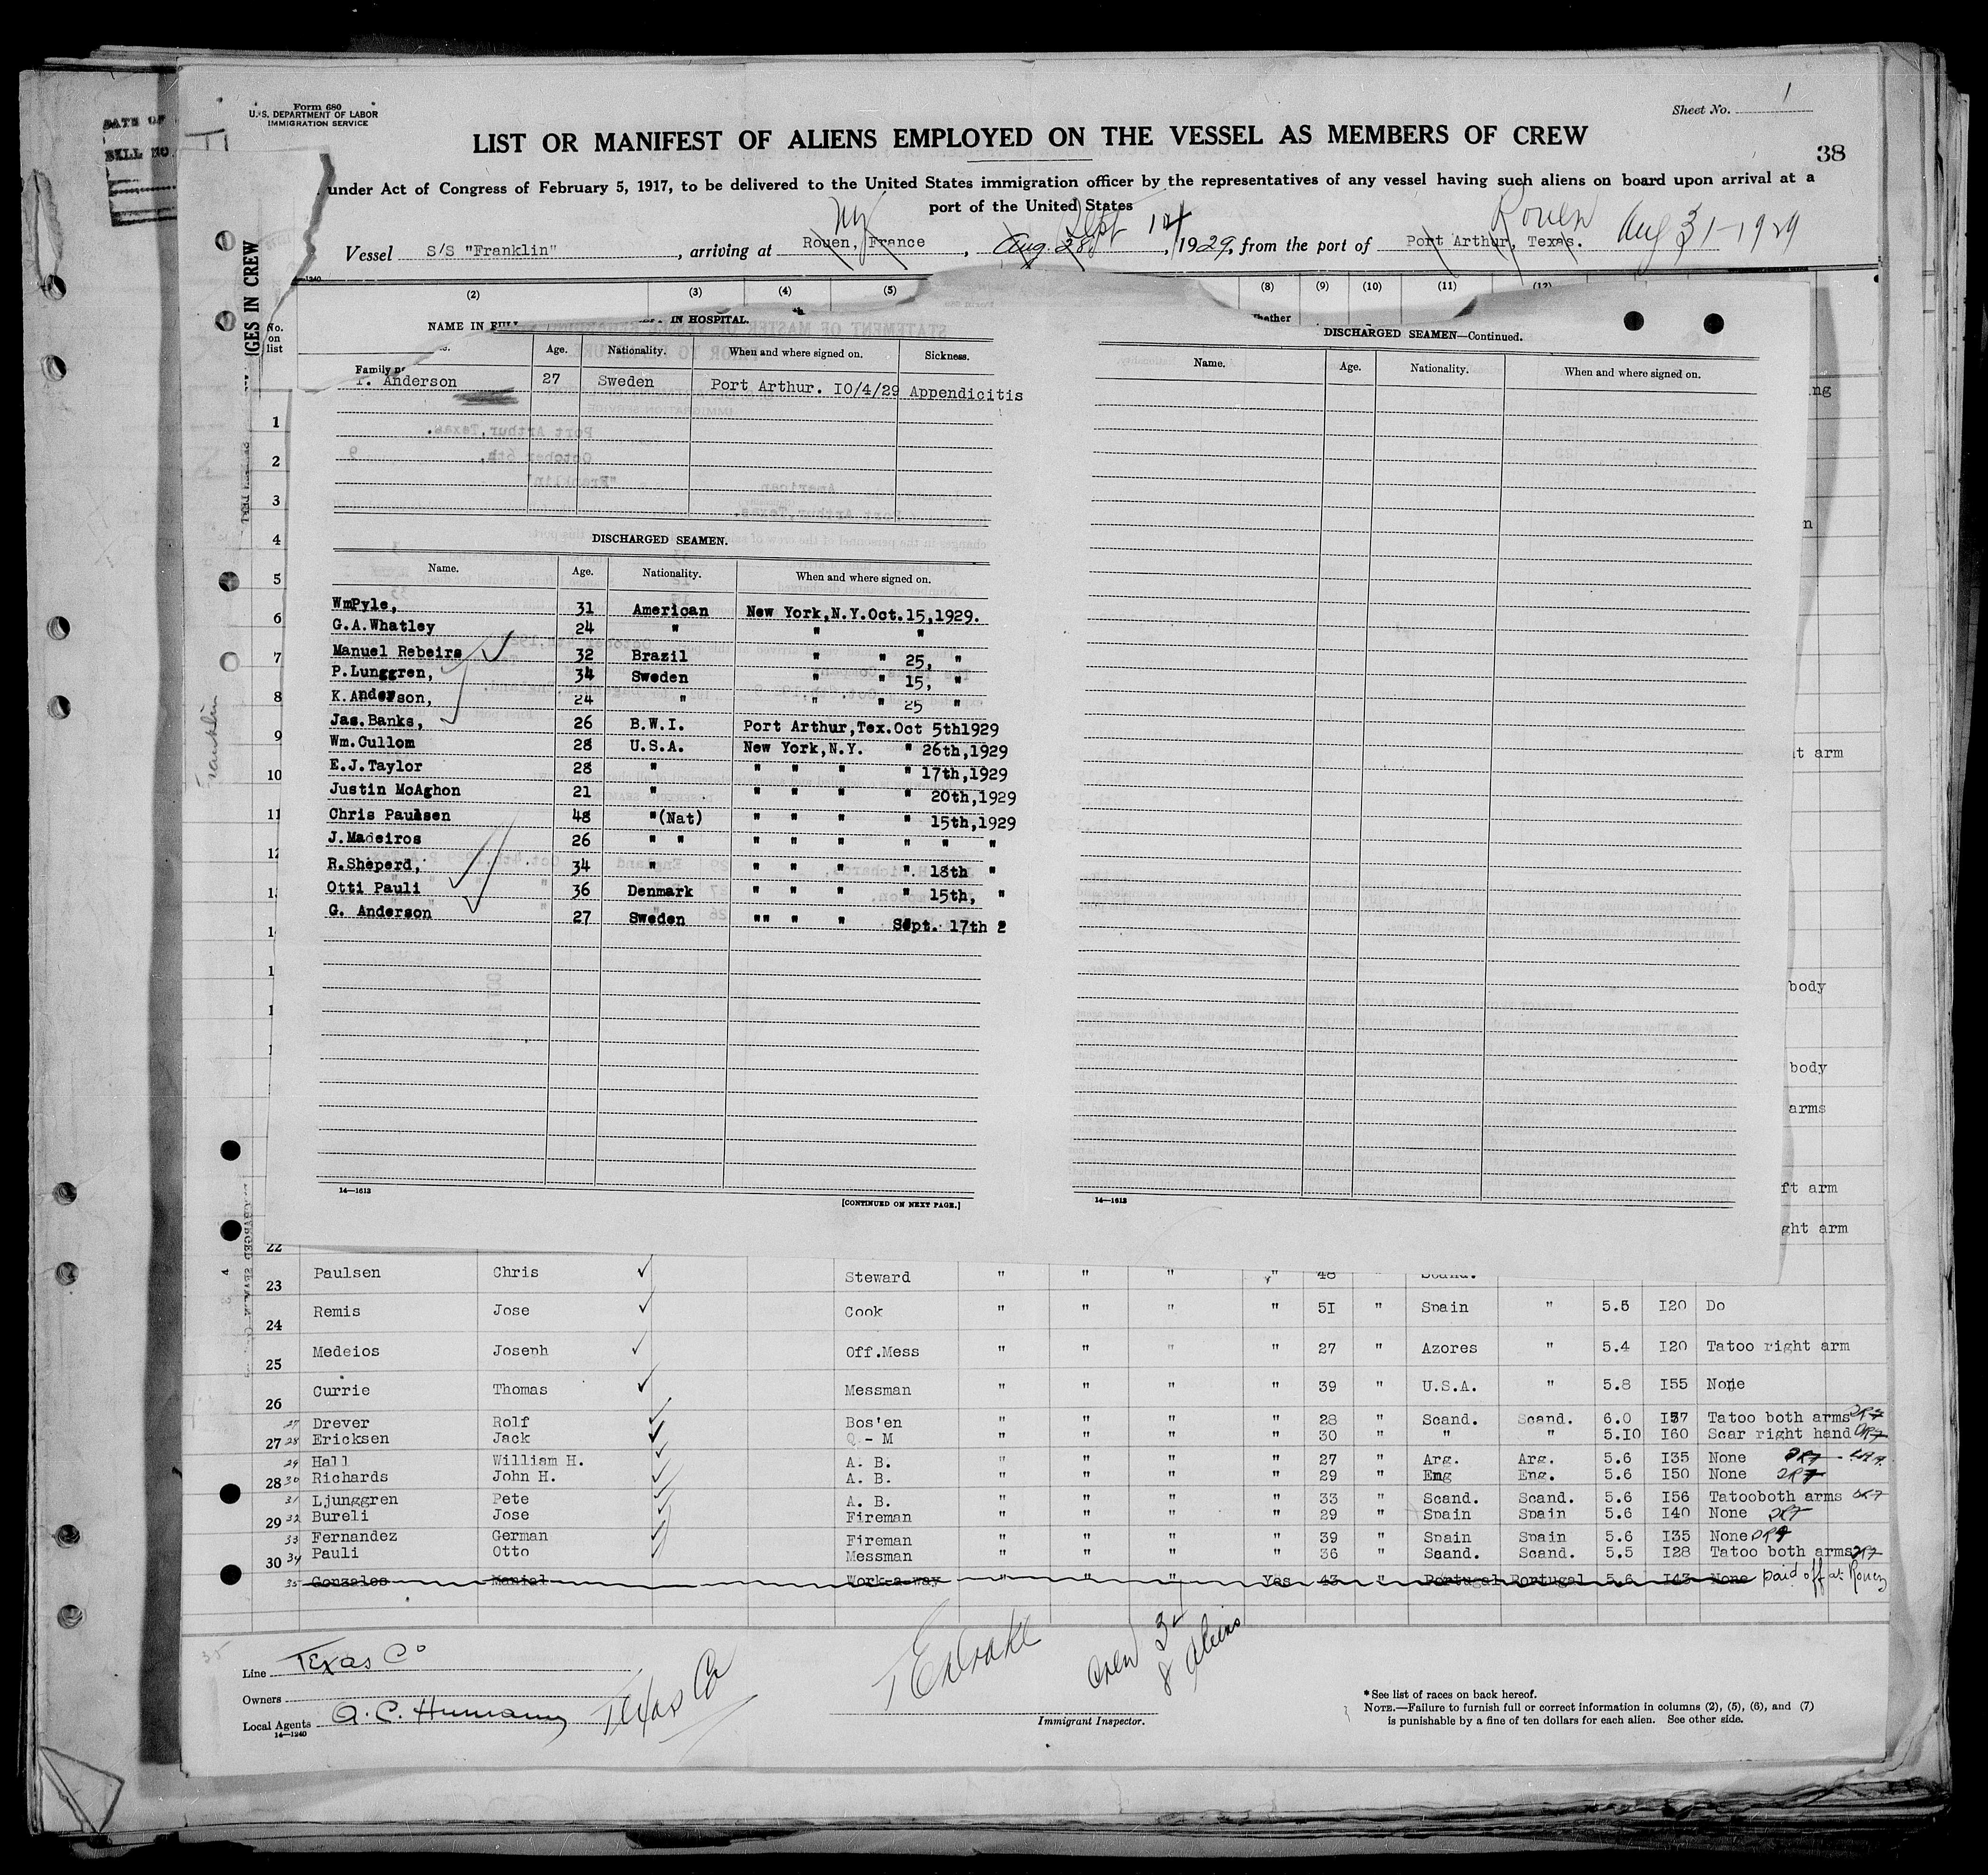 Form 680
U. S. DEPARTMENT OF LABOR
IMMIGRATION SERVICE
Sheet No. 1
LIST OR MANIFEST OF ALIENS EMPLOYED ON THE VESSEL AS MEMBERS OF CREW
38
under Act of Congress of February 5, 1917, to be delivered to the United States immigration officer by the representatives of any vessel having such aliens on board upon arrival at a
port of the United States
NY Sept 14 Rouen Aug 31-1929
Vessel S/S "Franklin", arriving at Rouen, France, Aug. 28, 1929, from the port of Port Arthur, Texas.
(2) (3) (4) (5) (8) (9) (10) (11) (12)
No. on list
NAME IN FULL
IN HOSPITAL.
Age. Nationality. When and where signed on. Sickness.
Anderson 27 Sweden Port Arthur. I0/4/29 Appendicitis
DISCHARGED SEAMEN.
Name. Age. Nationality. When and where signed on.
WmPyle, 31 American New York,N.Y.Oct.15,1929.
G.A.Whatley 24 " " "
Manuel Rebeirs 32 Brazil " " 25, "
P.Lunggren, 34 Sweden " " 15, "
K.Anderson, 24 " " " 25 "
Jas.Banks, 26 B.W.I. Port Arthur,Tex.Oct 5th1929
Wm.Cullom 28 U.S.A. New York,N.Y. " 26th,1929
E.J.Taylor 28 " " " " " 17th,1929
Justin McAghon 21 " " " " " 20th,1929
Chris Paulsen 48 "(Nat) " " " " 15th,1929
J.Madeiros 26 " " " " " " " "
R.Sheperd, 34 " " " " " 18th "
Otti Pauli 36 Denmark " " " " 15th, "
G. Anderson 27 Sweden "" " " Sept. 17th 2
14—1613
[CONTINUED ON NEXT PAGE.]
DISCHARGED SEAMEN—Continued.
Name. Age. Nationality. When and where signed on.
14—1613
GES IN CREW
Franklin
1
2
3
4
5
6
7
8
9
10
11
12
t arm
body
body
arms
ft arm
ght arm
22
23 Paulsen Chris Steward " " " " 48 " Scand.
24 Remis Jose Cook " " " " 5I " Spain " 5.5 I20 Do
25 Medeios Joseph Off.Mess " " " " 27 " Azores " 5.4 I20 Tatoo right arm
26 Currie Thomas Messman " " " " 39 " U.S.A. " 5.8 I55 None
27 Drever Rolf Bos'en " " " " 28 " Scand. Scand. 6.0 I57 Tatoo both arms
27 28 Ericksen Jack Q - M " " " " 30 " " " 5.I0 I60 Scar right hand
29 Hall William H. A. B. " " " " 27 " Arg. Arg. 5.6 I35 None
28 30 Richards John H. A. B. " " " " 29 " Eng Eng. 5.6 I50 None
31 Ljunggren Pete A. B. " " " " 33 " Scand. Scand. 5.6 I56 Tatooboth arms
29 32 Bureli Jose Fireman " " " " 29 " Spain Spain 5.6 I40 None
33 Fernandez German Fireman " " " " 39 " Spain Spain 5.6 I35 None
30 34 Pauli Otto Messman " " " " 36 " Scand. Scand. 5.5 I28 Tatoo both arms
35 Gonzales Manial Work-a-way " " " Yes 43 " Portugal Portugal 5.6 I43 None paid off at Rouen
35
Line Texas Co
Owners
Local Agents
14—1240
Texas Co
Immigrant Inspector.
Crew 34
8 Aliens
* See list of races on back hereof.
NOTE.—Failure to furnish full or correct information in columns (2), (5), (6), and (7)
is punishable by a fine of ten dollars for each alien. See other side.